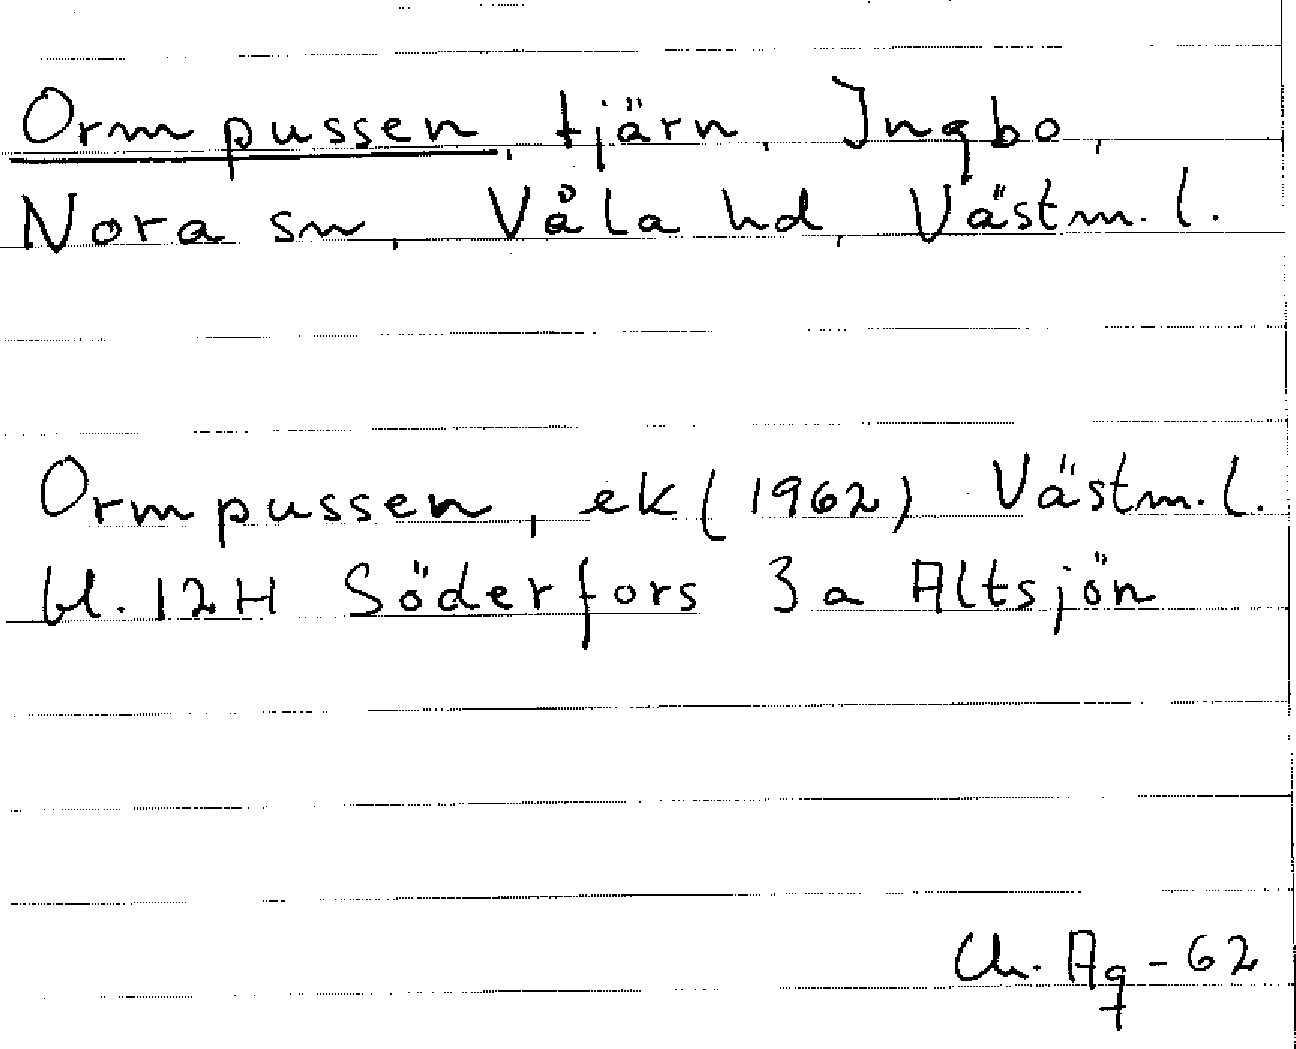 Ormpussen, tjärn, Ingbo,
Nora sn, Våla hd, Västm. l.
Ormpussen, ek (1962) Västm. l.
bl. 12H Söderfors 3a Altsjön
Ch. Ag -62